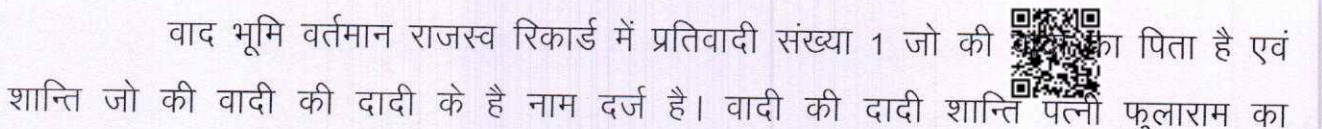 वाद भूमि वर्तमान राजस्व रिकार्ड में प्रतिवादी संख्या 1 जो की का पिता है एवं
शान्ति जो की वादी की दादी के है नाम दर्ज है। वादी की दादी शान्ति पत्नी फुलाराम का